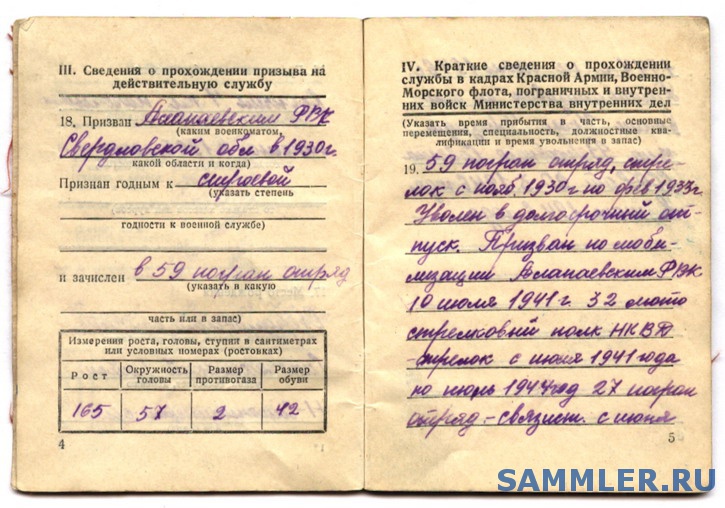 III. Сведения о прохождении призыва на
действительную службу
18. Призван Алапаевским РВК
(каким военкоматом,
Свердловской обл в 1930г.
какой области и когда)
Признан годным к строевой
(указать степень
годности к военной службе)
и зачислен в 59 погран отряд
(указать в какую
часть или в запас)
Измерения роста, головы, ступни в сантиметрах
или условных номерах (ростовках)
Рост Окружность головы Размер противогаза Размер обуви
165 57 2 42
4
IV. Краткие сведения о прохождении
службы в кадрах Красной Армии, Военно-
Морского флота, пограничных и внутрен-
них войск Министерства внутренних дел
(Указать время прибытия в часть, основные
перемещения, специальность, должностные ква-
лификации и время увольнения в запас)
19. 59 погран отряд, стре-
лок с нояб. 1930г по фев 1933г
Уволен в долгосрочный от-
пуск. Призван по моби-
лизации Алапаевским РВК
10 июля 1941 г. 32 мото
стрелковый полк НКВД
стрелок с июля 1941 года
по июль 1944 год 27 погран
отряд - связист. с июля
5
SAMMLER.RU